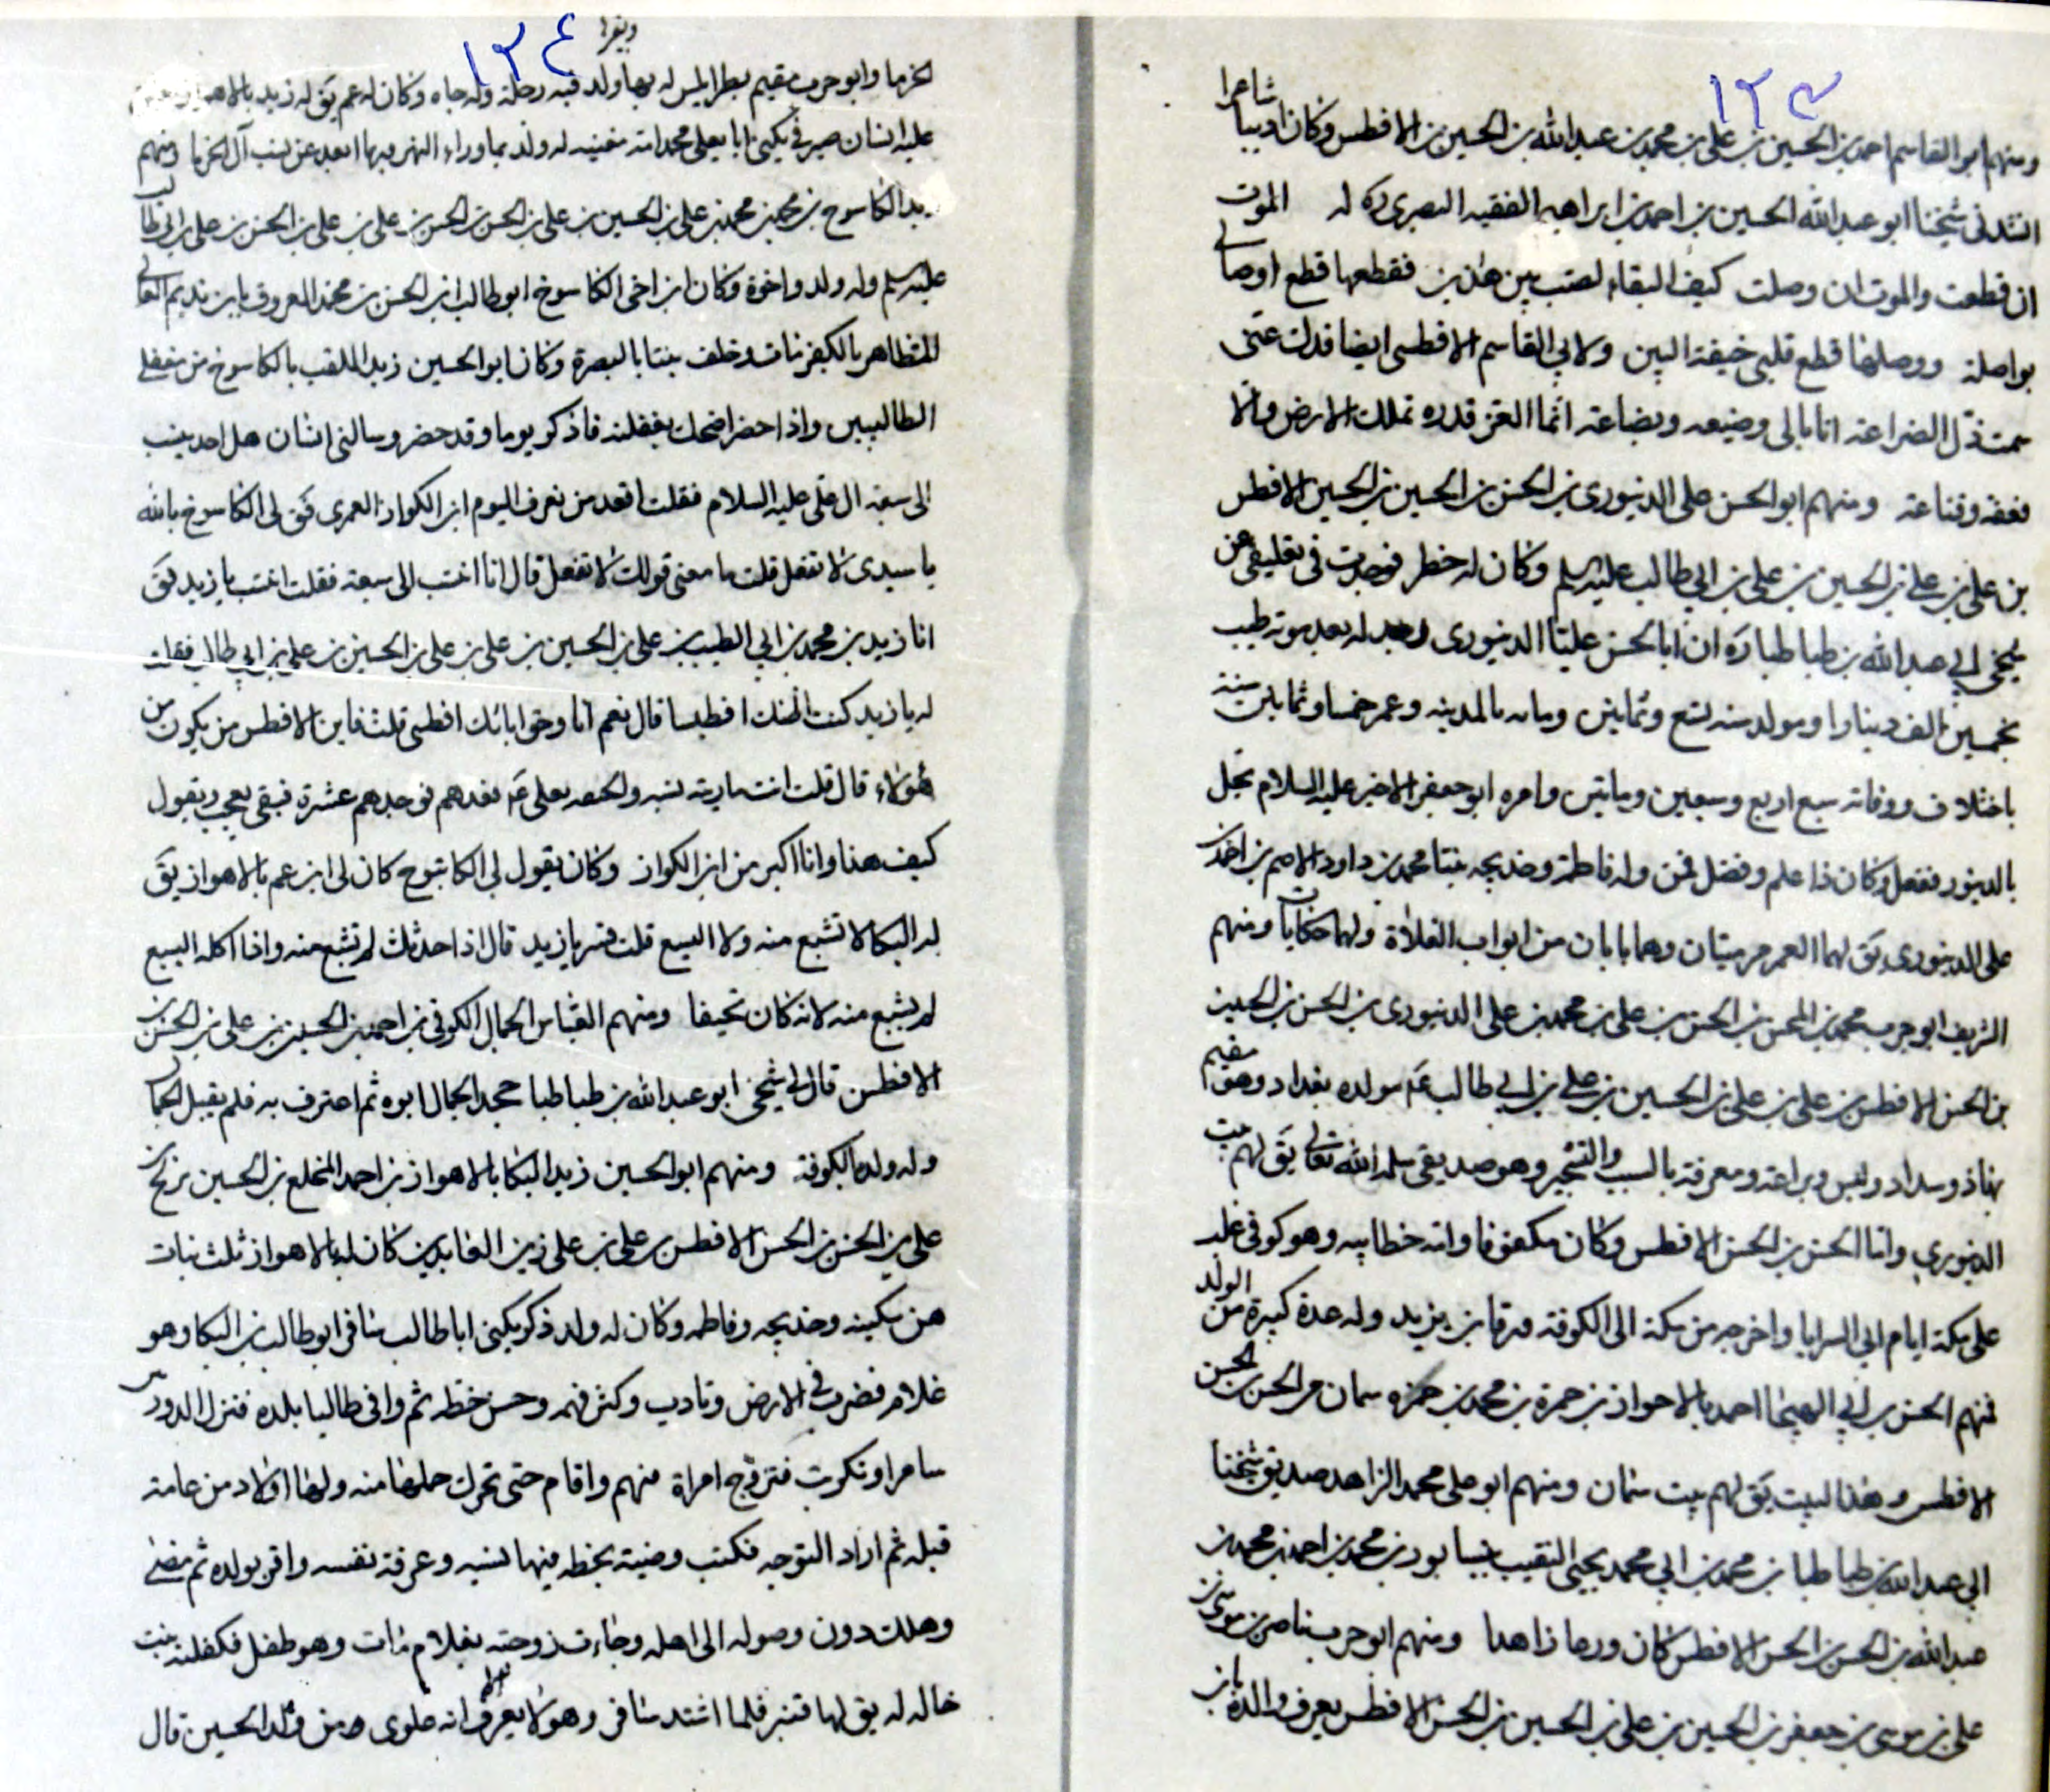 ١٢٣
ومنهم ابو القاسم احمد بن الحسين بن علي بن محمد بن عبدالله بن الحسين بن الافطس وكان اديبا شاعرا
انشدني شيخنا ابو عبدالله الحسين بن احمد بن ابراهيم الفقيه البصري ره له الموت
ان قطعت والموت ان وصلت كيف البقاء لصب بين هذين فقطعها قطع اوصالي
بواصلة ووصلها قطع قلبي خيفة البين ولابي القاسم الافطسي ايضا قدك عني
سمت ذل الضراعة انا مالي وضيعه وبضاعة انما العز قدره تملك الارض والا
فعفه وقناعة ومنهم ابو الحسن علي الدينوري بن الحسن بن الحسين بن الحسين الافطس
بن علي بن علي بن الحسين بن علي بن ابي طالب عليه سلم وكان له خطر فوجدت في تعليقي عن
شيخي ابي عبدالله بن طباطبا ره ان ابا الحسن عليا الدينوري وجد له بعد موته طيب
بخمسين الف دينارا ومولده سنه تسع وثمانين ومات بالمدينه وعمر خمسا وثمانين سنة
باختلاف ووفاته سبع اربع وسبعين وماتين وامره ابو جعفر الاخير عليه السلام تحل
بالدينور ففعل وكان ذا علم وفضل فمن ولده فاطمة وخديجه بنتا محمد بن داود الاصم بن احمد بن
علي الدينوري يق لهما العمر مريتان وهما بابان من ابواب الفلاة ولهما حكايات ومنهم
الشريف ابو حرب محمد بن المحسن بن الحسن بن علي بن محمد بن علي الدينوري بن الحسن بن الحسين
بن الحسن الافطس بن علي بن علي بن الحسين بن علي بن ابي طالب ع مولده بغداد وهو مقيم
بها ذو سداد ولسن وبراعة ومعرفة بالنسب والتشجير وهو صديقي سلمه الله تعالى يق لهم بيت
الدينوري واما الحسن بن الحسن الافطس وكان مكفوفا وانه خطابيه وهو كوفي غلب
على مكة ايام ابي السرايا واخرجه من مكة الى الكوفة ورقا بن يزيد وله عدة كبيرة من الولد
فمنهم الحسن بن ابي الهيجا احمد بالاحواز بن حمزة بن محمد بن حمزه سمان بن الحسن بن الحسن
الافطس وهذا البيت يق لهم بيت سمان ومنهم ابو علي محمد الزاهد صديق شيخنا
ابي عبدالله بن طباطبا بن محمد بن ابي محمد يحيى النقيب بنيسابور بن محمد بن احمد بن محمد بن
عبدالله بن الحسن بن الحسن الافطس كان ورعا زاهدا ومنهم ابو حرب ناصر بن موسى بن
علي بن موسى بن جعفر بن الحسين بن علي بن الحسين بن الحسن الافطس يعرف والده بابن
١٢٤
ويعرف
الخرما وابو حرب مقيم بطرابلس له بها ولد فيه رحلة وله جاه وكان له عم يق له زيد بالاهواز
عليه انسان صيرفي يكنى ابا يعلي محمد امه مغنيه له ولد بماوراء النهر فيها ابعد عن نسب آل الخرما ومنهم
زيد الكاسوح بن محمد بن محمد بن علي بن الحسين بن علي بن الحسن بن الحسن بن علي بن علي بن الحسن بن علي بن ابي طالب
عليه سلم وله ولد واخوة وكان ابن اخي الكاسوخ ابو طالب بن الحسن بن محمد المعروف بابن نديم
المتظاهر بالكفر مات وخلف بنتا بالبصرة وكان ابو الحسين زيد الملقب بالكاسوخ من مغفلي
الطالبيين واذا حضر اضحك بغفلته فاذكر يوما وقد حضر وسالني انسان هل احد ينسب
الى سبعه ال علي عليه السلام فقلت اقعد من نعرف اليوم ابن الكواز العمري فق لي الكاسوخ بالله
يا سيدي لا تفعل قلت ما معنى قولك لا تفعل قال انا انتسب الى سبعة فقلت انتسب يا زيد فق
انا زيد بن محمد بن ابي الطيب بن علي بن الحسين بن علي بن علي بن علي بن الحسين بن علي بن ابي طالب فقلت
له يا زيد كنت اظنك افطسيا قال نعم انا وحق ابائك افطسي قلت فاين الافطس من يكون من
هؤلاء قال قلت انت مارية نسبه والحقه بعلي ع نعدهم فوجدهم عشرة فبقي يعجب ويقول
كيف هذا وانا اكبر من ابن الكواز وكان يقول لي الكاتبوح كان لي ابن عم بالاهواز يق
له البكا لا تشبع منه ولا السبع قلت فسر يا زيد قال اذا حدثك لم تشبع منه واذا اكله السبع
لم يشبع منه لانه كان نحيفا ومنهم العباس الجمال الكوفي بن احمد بن الحسين بن علي بن الحسن بن
الافطس قال لي شيخي ابو عبدالله بن طباطبا جحد الجمال ابوه ثم اعترف به فلم يقبل الجمال
وله ولد بالكوفة ومنهم ابو الحسين زيد البكا بالاهواز بن احمد المخلع بن الحسين بن
علي بن الحسن بن الحسن الافطس بن علي بن علي زين العابدين كان له بالاهواز ثلث بنات
هن سكينه وخديجه وفاطمه وكان له ولد ذكر يكنى ابا طالب سافر ابو طالب بن البكا وهو
غلام فضرب في الارض وتادب وكثر فهمه وحسن خطه ثم وافى طالبا بلده فنزل الدور بين
سامرا وتكريت فتزوج امراة منهم واقام حتى تحرك حملها منه ولها اولاد من عامة
قبله ثم اراد التوجه فكتب وصية بخطه فيها نسبه وعرفة نفسه واقر بولده ثم مضى
وهلك دون وصوله الى اهله وجاءت زوجته بغلام مات وهو طفل فكفلته بنت
خالة له يق لها قنبر فلما اشتد سافر وهو لا يعرف الا انه علوي من ولد الحسين قال